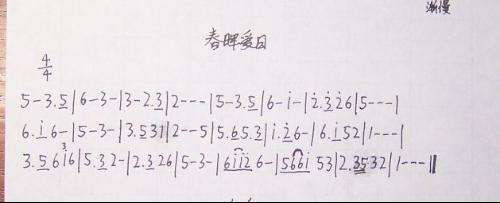 渐慢
春晖爱日
4/4
5-3.5|6-3-|3-2.3|2---|5-3.5|6-i-|i̇2.3̇26|5---|
6.i6-|5-3-|3.531|2--5|5.65.3|i.26-|6.i52|1---|
3.56i6|5.32-|2.326|5-3-|6ii26-|566i 53|2.3532|1---‖